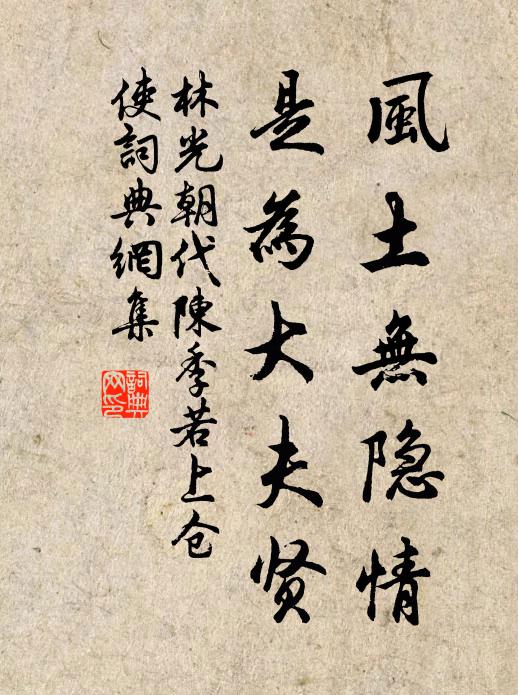 風土無隐情
是為大夫贤
林光朝代陳季若上仓
使詞典網集
詞典网印